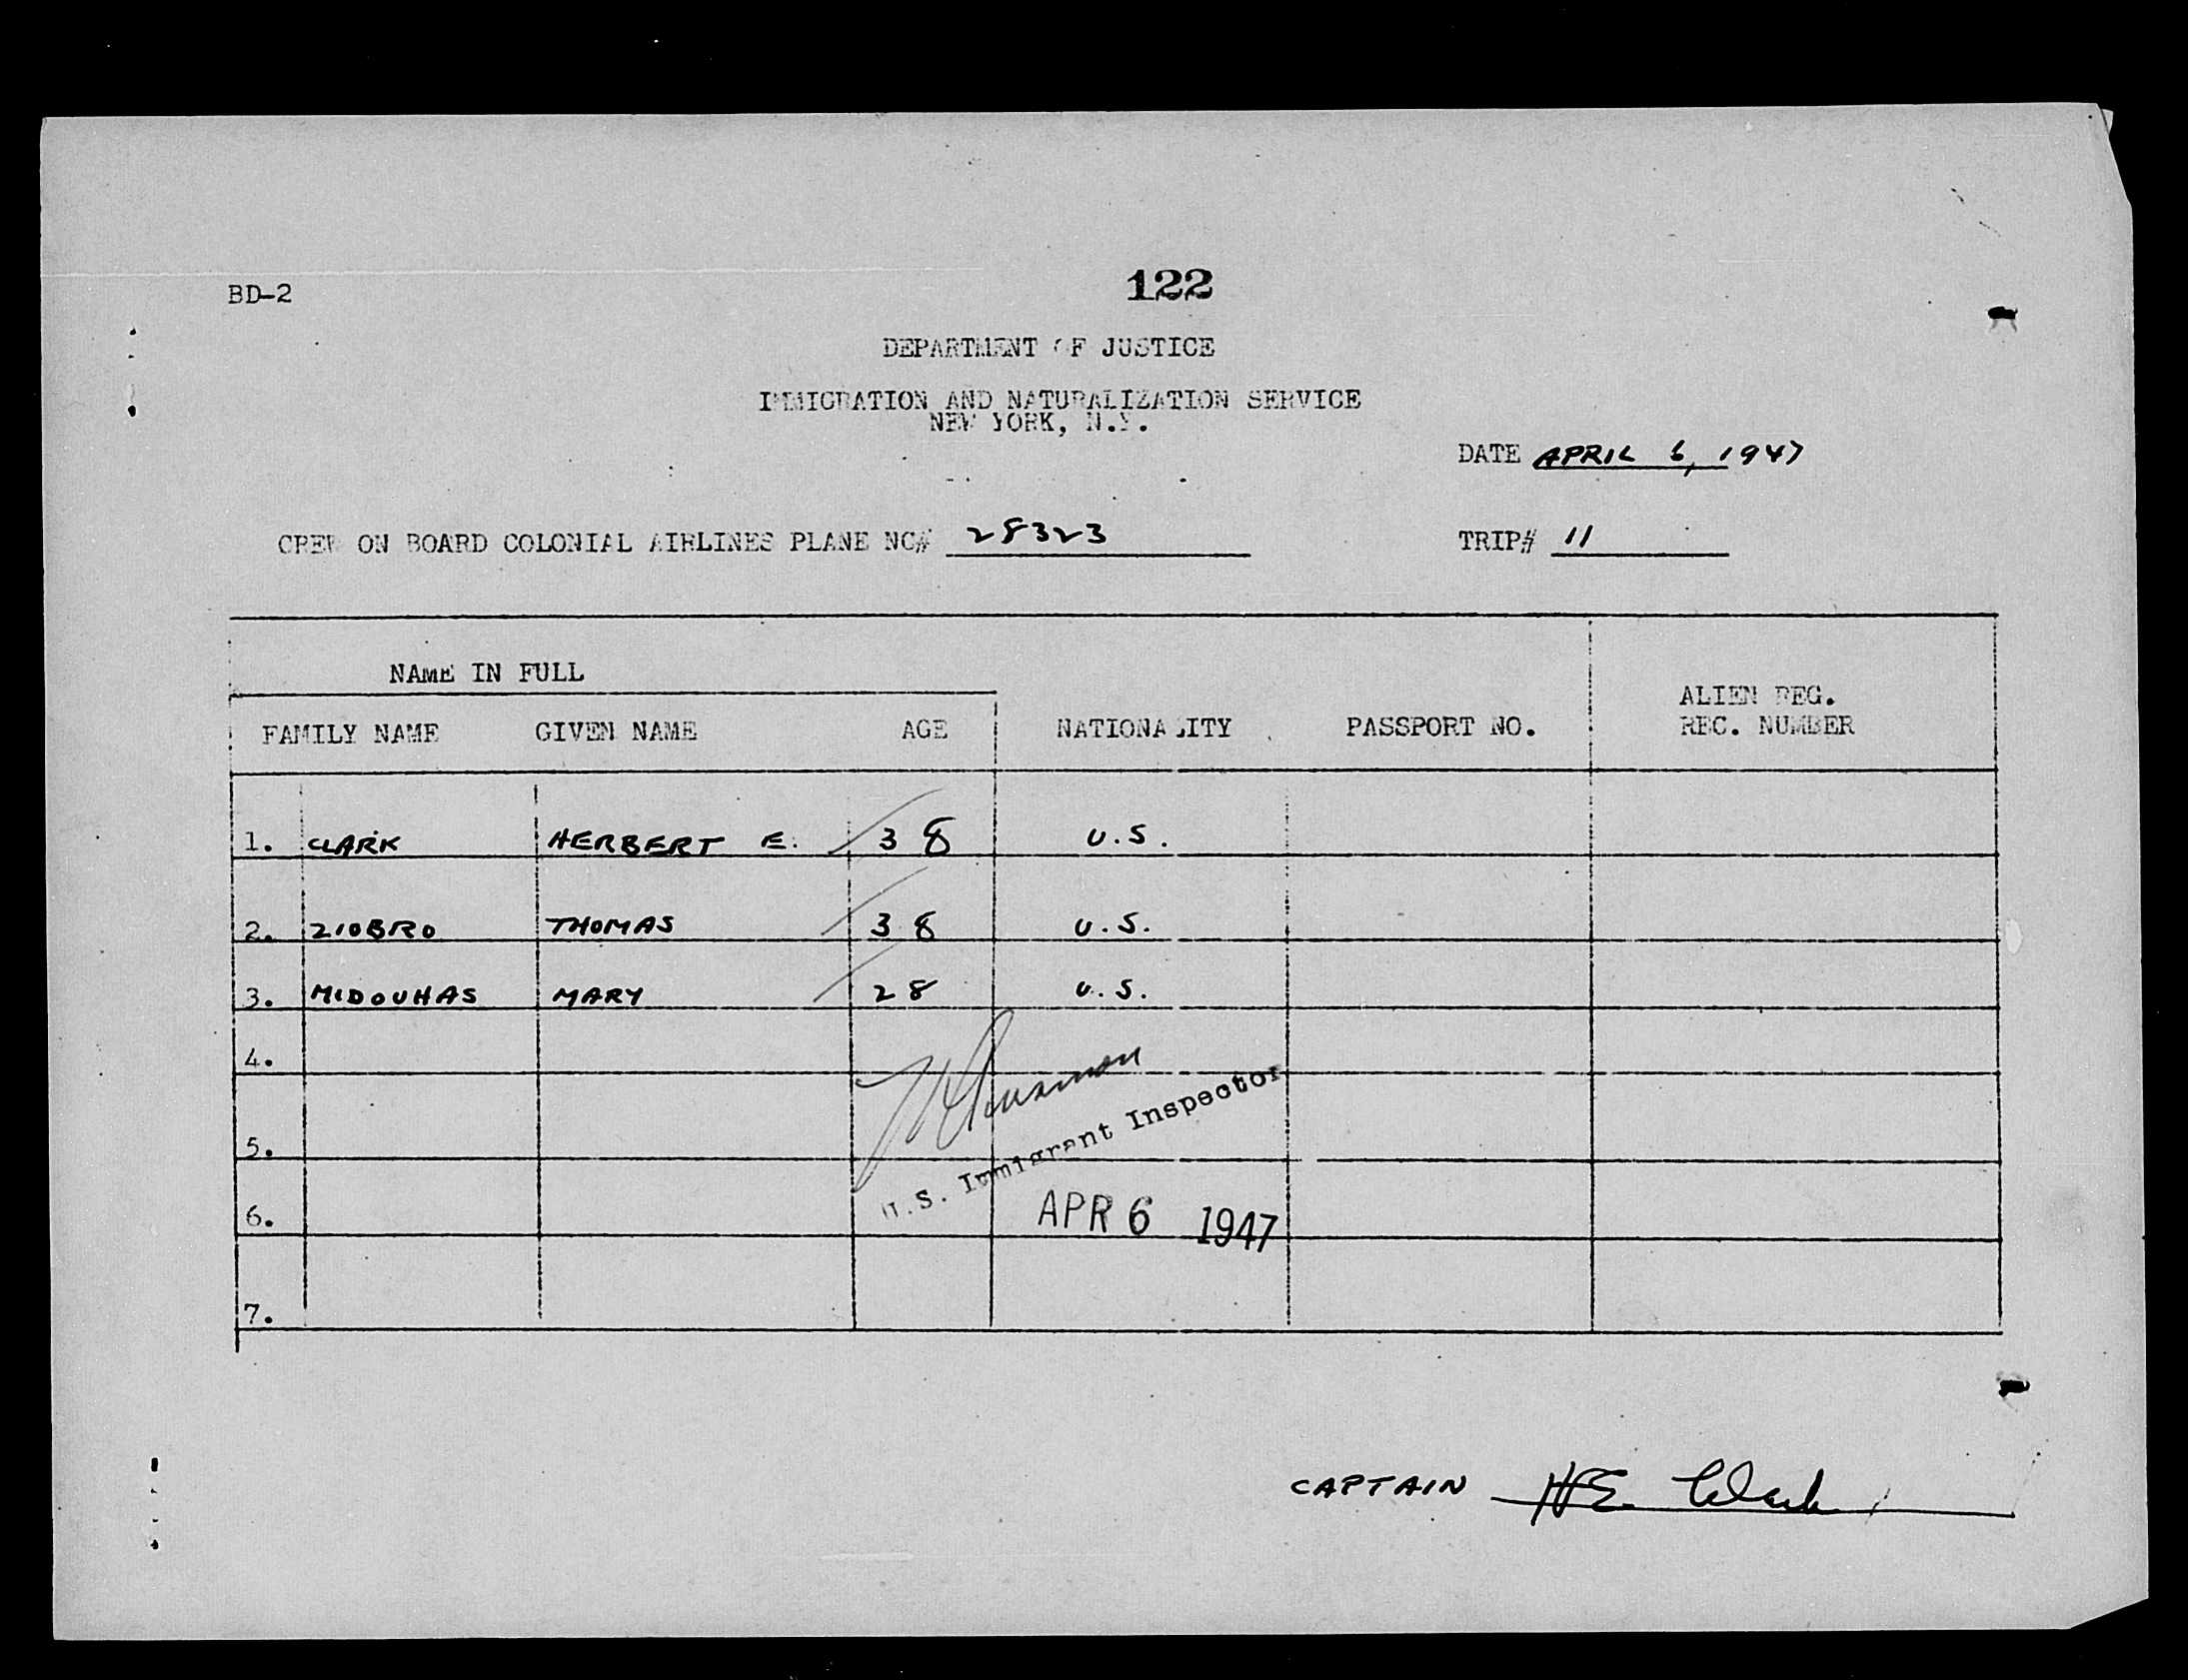 BD-2
122
DEPARTMENT OF JUSTICE
IMMIGRATION AND NATURALIZATION SERVICE
NEW YORK, N.Y.
DATE APRIL 6, 1947
CREW ON BOARD COLONIAL AIRLINES PLANE NC# 28323 TRIP# 11
NAME IN FULL
ALIEN REG.
FAMILY NAME GIVEN NAME AGE NATIONALITY PASSPORT NO. REC. NUMBER
1. CLARK HERBERT E. 38 U.S.
2. ZIOBRO THOMAS 38 U.S.
3. MIDOUHAS MARY 28 U.S.
4.
U.S. Immigrant Inspector
5.
6. APR 6 1947
7.
CAPTAIN H E Clark